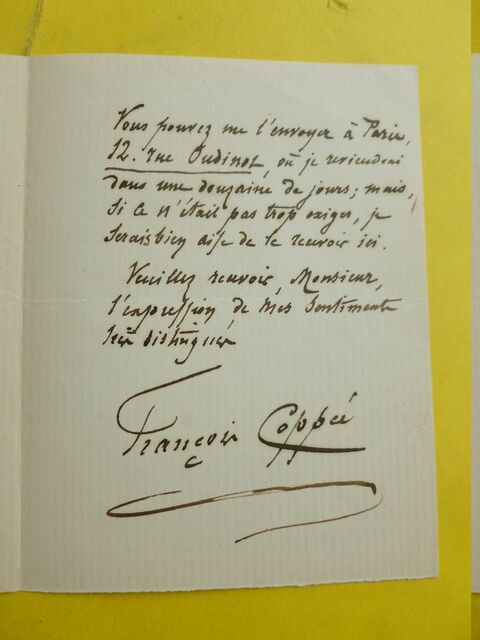 Vous pouvez me l'envoyer à Paris,
12. rue Oudinot, où je reviendrai
dans une douzaine de jours; mais,
si ce n'était pas trop exiger, je
serais bien aise de le recevoir ici.
Veuillez recevoir, Monsieur,
l'expression de mes sentiments
très distingués
François Coppée